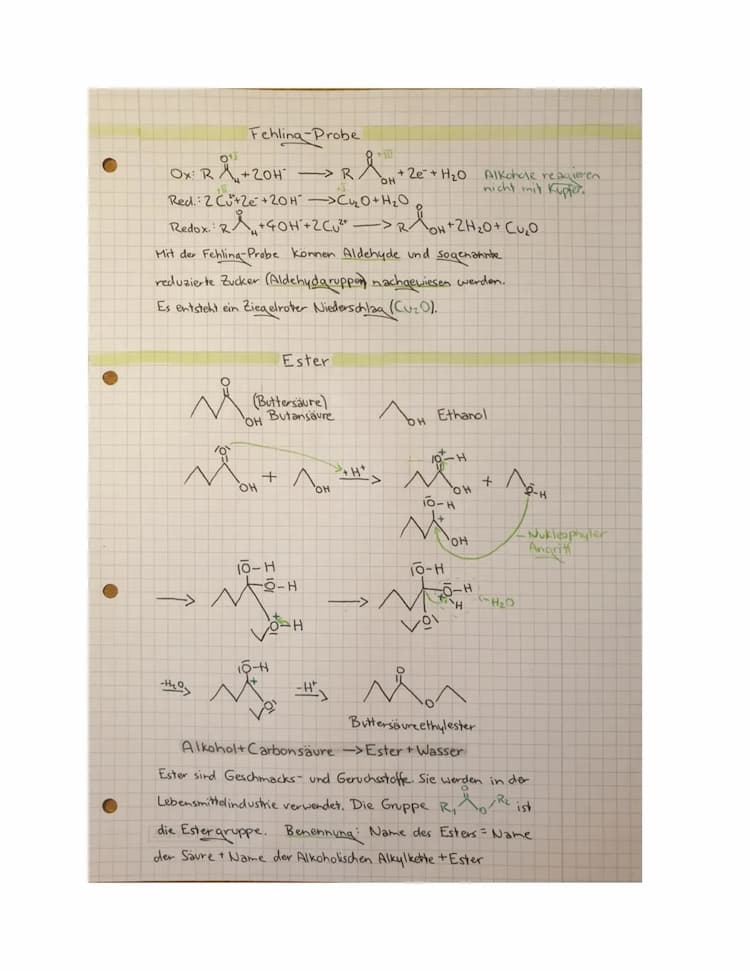 Fehling-Probe
Ox.: R O +I H + 2OH⁻ → R O +III OH + 2e⁻ + H₂O Alkohole reagieren
nicht mit Kupfer.
Red.: 2 Cu²⁺ +II + 2e⁻ + 2OH⁻ → +I Cu₂O + H₂O
Redox.: R O H + 4OH⁻ + 2Cu²⁺ → R O OH + 2H₂O + Cu₂O
Mit der Fehling-Probe können Aldehyde und sogenannte
reduzierte Zucker (Aldehydgruppen) nachgewiesen werden.
Es entsteht ein Ziegelroter Niederschlag (Cu₂O).
Ester
O OH (Buttersäure)
Butansäure
OH Ethanol
O OH + OH +H⁺ → O⁺-H OH + O-H
O-H + OH
-Nukleophyler
Angriff
→ O-H O-H O⁺-H → O-H O-H + H O -H₂O
-H₂O → O-H + O -H⁺ → O O
Buttersäureethylester
Alkohol + Carbonsäure → Ester + Wasser
Ester sind Geschmacks- und Geruchsstoffe. Sie werden in der
Lebensmittelindustrie verwendet. Die Gruppe R₁ O O R₂ ist
die Estergruppe. Benennung: Name des Esters = Name
der Säure + Name der Alkoholischen Alkylkette + Ester